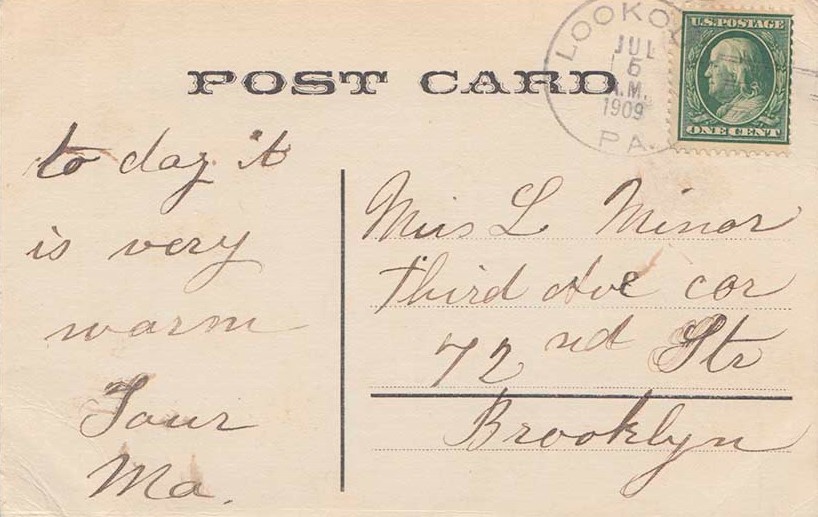 POST CARD
LOOKO
JUL
5
A.M.
1909
PA.
U.S. POSTAGE
ONE CENT
to day it
is very
warm
Your
Ma.
Miss L Minor
Third Ave cor
72nd Str
Brooklyn